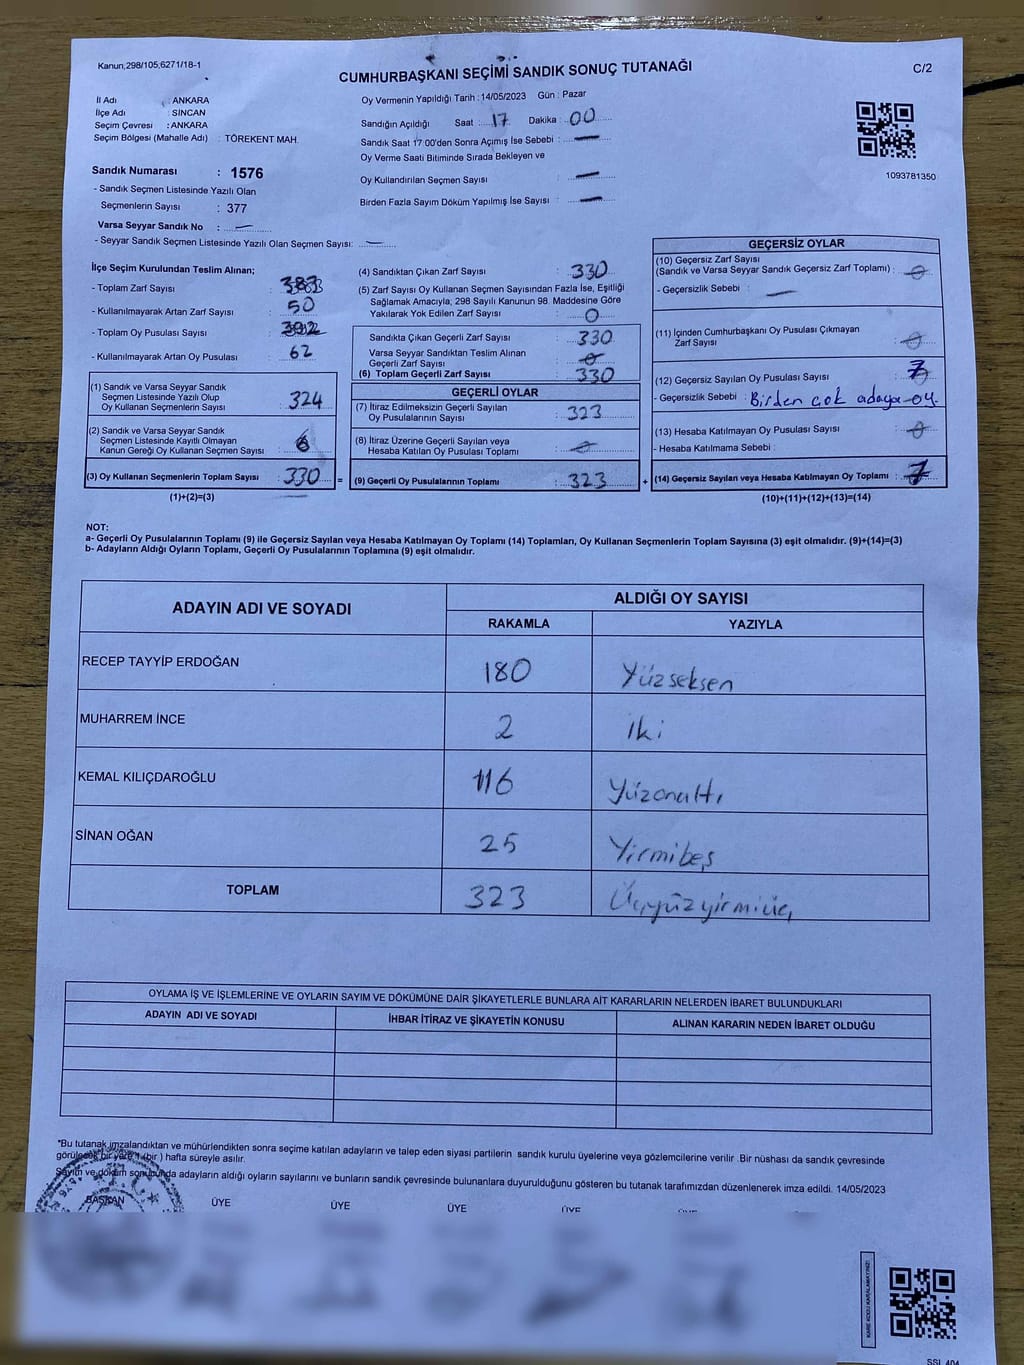 Kanun,298/105,6271/18-1
CUMHURBAŞKANI SEÇİMİ SANDIK SONUÇ TUTANAĞI
C/2
İl Adı : ANKARA
İlçe Adı : SİNCAN
Seçim Çevresi : ANKARA
Seçim Bölgesi (Mahalle Adı) : TÖREKENT MAH.
Oy Vermenin Yapıldığı Tarih : 14/05/2023 Gün : Pazar
Sandığın Açıldığı Saat : 17 Dakika : 00
Sandık Saat 17:00'den Sonra Açımış İse Sebebi : —
Oy Verme Saati Bitiminde Sırada Bekleyen ve
Oy Kullandırılan Seçmen Sayısı : —
Birden Fazla Sayım Döküm Yapılmış İse Sayısı : —
1093781350
Sandık Numarası : 1576
- Sandık Seçmen Listesinde Yazılı Olan
Seçmenlerin Sayısı : 377
Varsa Seyyar Sandık No : —
- Seyyar Sandık Seçmen Listesinde Yazılı Olan Seçmen Sayısı: —
İlçe Seçim Kurulundan Teslim Alınan;
- Toplam Zarf Sayısı :
- Kullanılmayarak Artan Zarf Sayısı : 50
- Toplam Oy Pusulası Sayısı :
- Kullanılmayarak Artan Oy Pusulası : 62
(1) Sandık ve Varsa Seyyar Sandık
Seçmen Listesinde Yazılı Olup
Oy Kullanan Seçmenlerin Sayısı : 324
(2) Sandık ve Varsa Seyyar Sandık
Seçmen Listesinde Kayıtlı Olmayan
Kanun Gereği Oy Kullanan Seçmen Sayısı : 6
(3) Oy Kullanan Seçmenlerin Toplam Sayısı : 330
(1)+(2)=(3)
(4) Sandıktan Çıkan Zarf Sayısı : 330
(5) Zarf Sayısı Oy Kullanan Seçmen Sayısından Fazla İse, Eşitliği
Sağlamak Amacıyla, 298 Sayılı Kanunun 98. Maddesine Göre
Yakılarak Yok Edilen Zarf Sayısı : 0
Sandıkta Çıkan Geçerli Zarf Sayısı : 330
Varsa Seyyar Sandıktan Teslim Alınan
Geçerli Zarf Sayısı : 0
(6) Toplam Geçerli Zarf Sayısı : 330
GEÇERLİ OYLAR
(7) İtiraz Edilmeksizin Geçerli Sayılan
Oy Pusulalarının Sayısı : 323
(8) İtiraz Üzerine Geçerli Sayılan veya
Hesaba Katılan Oy Pusulası Toplamı : 0
= (9) Geçerli Oy Pusulalarının Toplamı : 323
GEÇERSİZ OYLAR
(10) Geçersiz Zarf Sayısı
(Sandık ve Varsa Seyyar Sandık Geçersiz Zarf Toplamı) : 0
- Geçersizlik Sebebi : —
(11) İçinden Cumhurbaşkanı Oy Pusulası Çıkmayan
Zarf Sayısı : 0
(12) Geçersiz Sayılan Oy Pusulası Sayısı : 7
- Geçersizlik Sebebi : Birden çok adaya oy.
(13) Hesaba Katılmayan Oy Pusulası Sayısı : 0
- Hesaba Katılmama Sebebi :
+ (14) Geçersiz Sayılan veya Hesaba Katılmayan Oy Toplamı : 7
(10)+(11)+(12)+(13)=(14)
NOT:
a- Geçerli Oy Pusulalarının Toplamı (9) ile Geçersiz Sayılan veya Hesaba Katılmayan Oy Toplamı (14) Toplamları, Oy Kullanan Seçmenlerin Toplam Sayısına (3) eşit olmalıdır. (9)+(14)=(3)
b- Adayların Aldığı Oyların Toplamı, Geçerli Oy Pusulalarının Toplamına (9) eşit olmalıdır.
ADAYIN ADI VE SOYADI
ALDIĞI OY SAYISI
RAKAMLA YAZIYLA
RECEP TAYYİP ERDOĞAN 180 Yüzseksen
MUHARREM İNCE 2 İki
KEMAL KILIÇDAROĞLU 116 Yüzonaltı
SİNAN OĞAN 25 Yirmibeş
TOPLAM 323 Üçyüzyirmiüç
OYLAMA İŞ VE İŞLEMLERİNE VE OYLARIN SAYIM VE DÖKÜMÜNE DAİR ŞİKAYETLERLE BUNLARA AİT KARARLARIN NELERDEN İBARET BULUNDUKLARI
ADAYIN ADI VE SOYADI İHBAR İTİRAZ VE ŞİKAYETİN KONUSU ALINAN KARARIN NEDEN İBARET OLDUĞU
"Bu tutanak imzalandıktan ve mühürlendikten sonra seçime katılan adayların ve talep eden siyasi partilerin sandık kurulu üyelerine veya gözlemcilerine verilir .Bir nüshası da sandık çevresinde
görülecek bir yere 1 (bir ) hafta süreyle asılır.
Sayım ve döküm sonucunda adayların aldığı oyların sayılarını ve bunların sandık çevresinde bulunanlara duyurulduğunu gösteren bu tutanak tarafımızdan düzenlenerek imza edildi. 14/05/2023
BAŞKAN ÜYE ÜYE ÜYE ÜYE ÜYE
KARE KODU KARALAMAYINIZ!